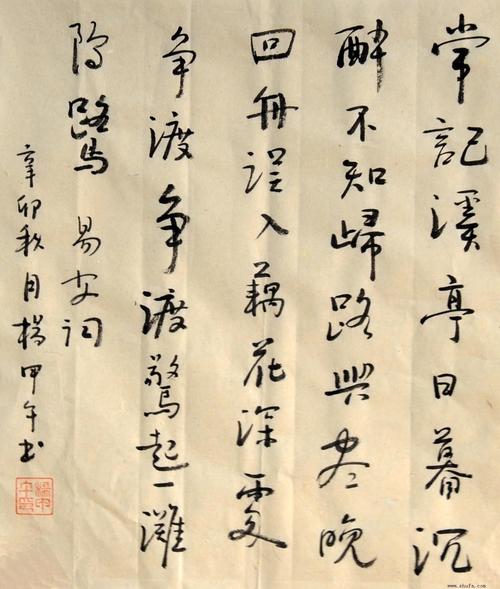 常記溪亭日暮沉
醉不知歸路興盡晚
回舟误入藕花深處
争渡争渡驚起一灘
鷗鷺 易安词
辛卯秋月楊甲午书
www.shufa.com